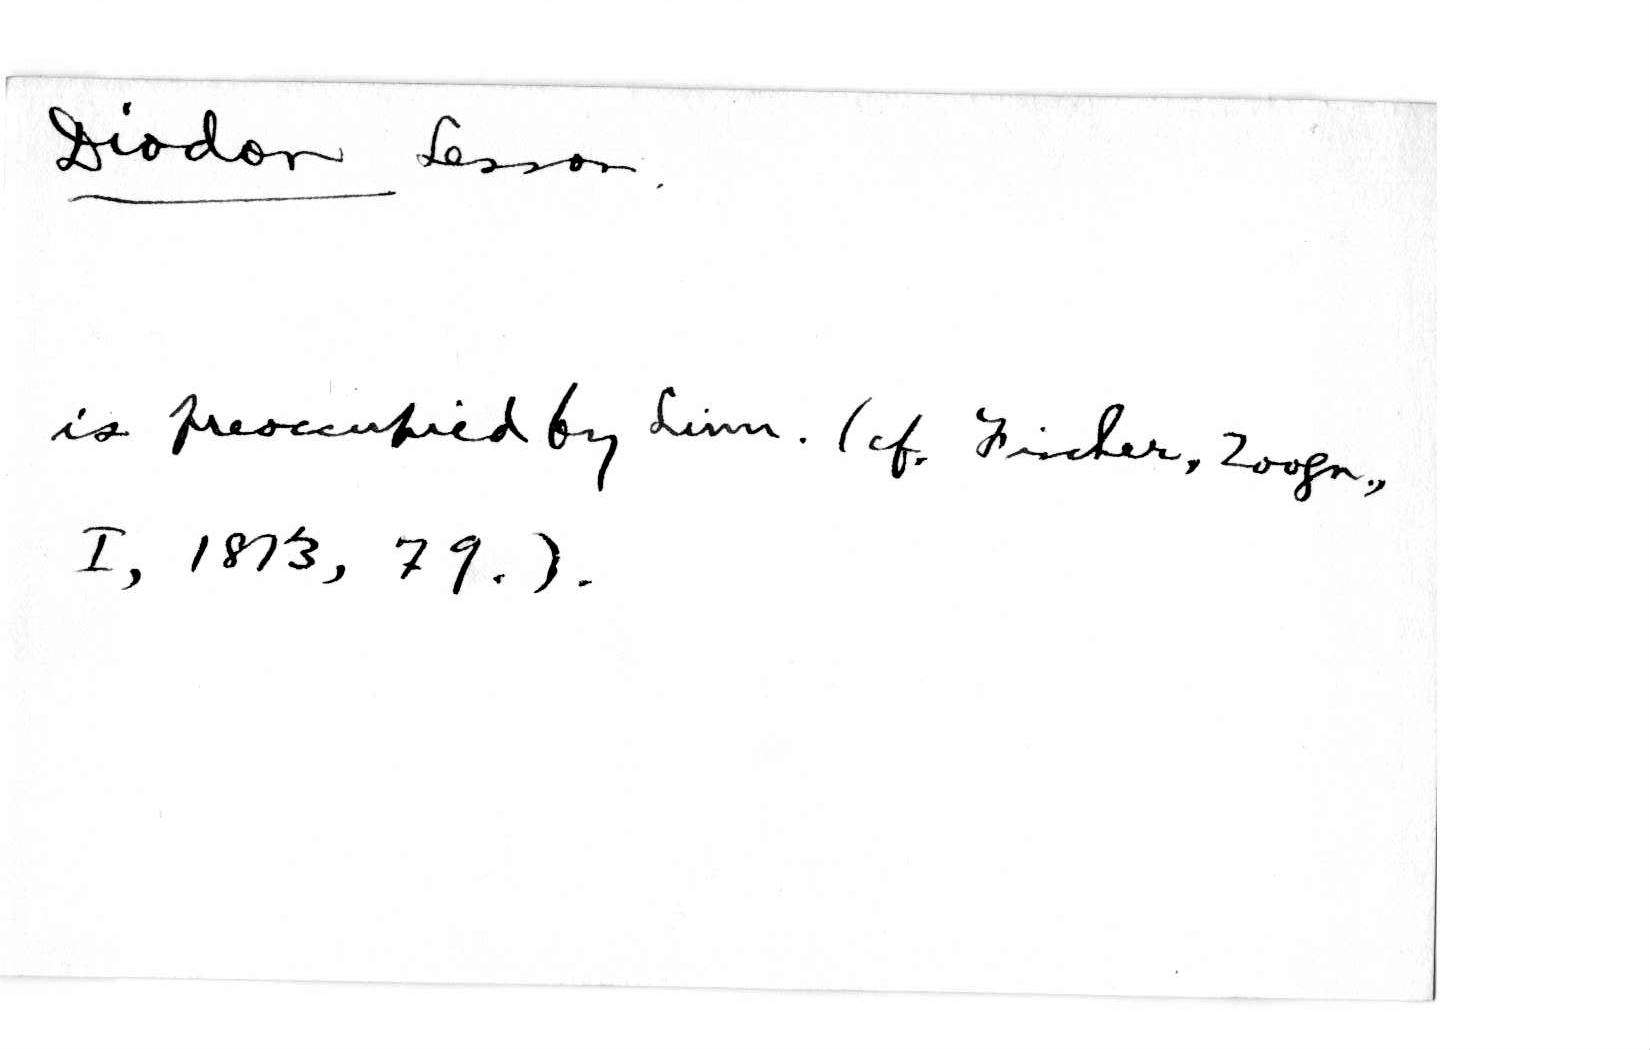 Diodon Lesson.
is preoccupied by Linn. (cf. Fischer, Zoogn.,
I, 1813, 79.).